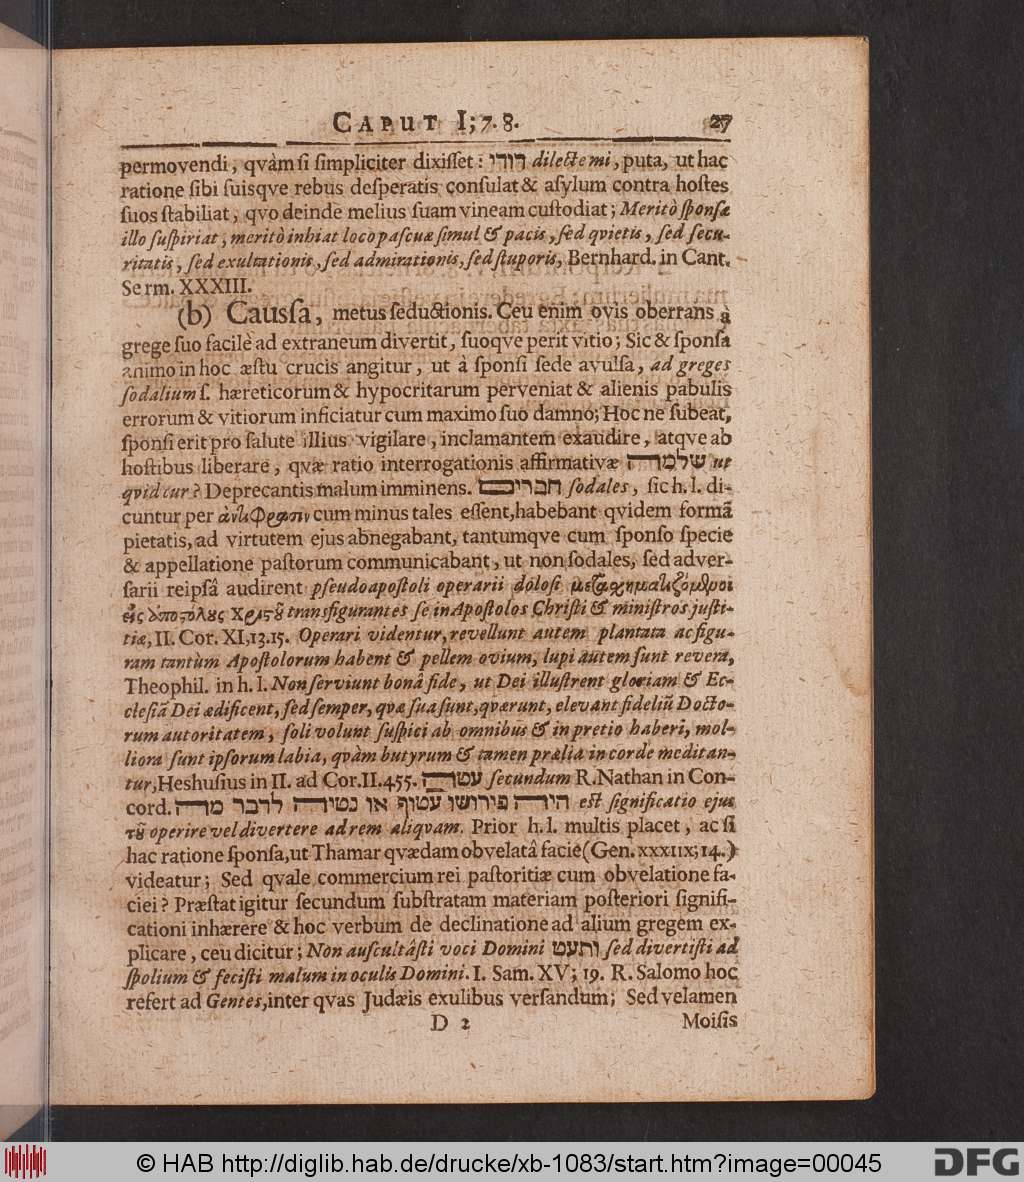 CAPUT I; 7. 8. 27
permovendi, qvàm si simpliciter dixisset: דודי dilecte mi, puta, ut hac
ratione sibi suisqve rebus desperatis consulat & asylum contra hostes
suos stabiliat, qvo deinde melius suam vineam custodiat; Meritò sponsæ
illo suspiriat, meritò inhiat loco pascuæ simul & pacis, sed qvietis, sed secu-
ritatis, sed exultationis, sed admirationis, sed stuporis, Bernhard. in Cant.
Serm. XXXIII.
(b) Caussa, metus seductionis. Ceu enim ovis oberrans à
grege suo facilè ad extraneum divertit, suoqve perit vitio; Sic & sponsa
animo in hoc æstu crucis angitur, ut à sponsi sede avulsa, ad greges
sodalium s. hæreticorum & hypocritarum perveniat & alienis pabulis
errorum & vitiorum inficiatur cum maximo suo damno; Hoc ne subeat,
sponsi erit pro salute illius vigilare, inclamantem exaudire, atqve ab
hostibus liberare, qvæ ratio interrogationis affirmativæ שלמה ut
qvid cur? Deprecantis malum imminens. חברים sodales, sic h. l. di-
cuntur per ἀντίφρασιν cum minus tales essent, habebant qvidem formã
pietatis, ad virtutem ejus abnegabant, tantumqve cum sponso specie
& appellatione pastorum communicabant, ut non sodales, sed adver-
sarii reipsâ audirent pseudoapostoli operarii dolosi μετασχηματιζόμενοι
εἰς ἀποστόλους Χριστοῦ transfigurantes se in Apostolos Christi & ministros justi-
tiæ, II. Cor. XI, 13. 15. Operari videntur, revellunt autem plantata ac figu-
ram tantùm Apostolorum habent & pellem ovium, lupi autem sunt revera,
Theophil. in h. l. Non serviunt bonâ fide, ut Dei illustrent gloriam & Ec-
clesiã Dei ædificent, sed semper, qvæ sua sunt, qværunt, elevant fideliũ Docto-
rum autoritatem, soli volunt suspici ab omnibus & in pretio haberi, mol-
liora sunt ipsorum labia, qvàm butyrum & tamen prælia in corde meditan-
tur, Heshusius in II. ad Cor. II. 455. עטה secundum R. Nathan in Con-
cord. היה פירושו עטוף או נטיה לדבר מה est significatio ejus
τοῦ operire vel divertere ad rem aliqvam. Prior h. l. multis placet, ac si
hac ratione sponsa, ut Thamar qvædam obvelatâ facie (Gen. XXXIIX; 14.)
videatur; Sed qvale commercium rei pastoritiæ cum obvelatione fa-
ciei? Præstat igitur secundum substratam materiam posteriori signifi-
cationi inhærere & hoc verbum de declinatione ad alium gregem ex-
plicare, ceu dicitur; Non auscultâsti voci Domini ותעט sed divertisti ad
spolium & fecisti malum in oculis Domini. I. Sam. XV; 19. R. Salomo hoc
refert ad Gentes, inter qvas Judæis exulibus versandum; Sed velamen
D 2 Moisis
© HAB http://diglib.hab.de/drucke/xb-1083/start.htm?image=00045 DFG